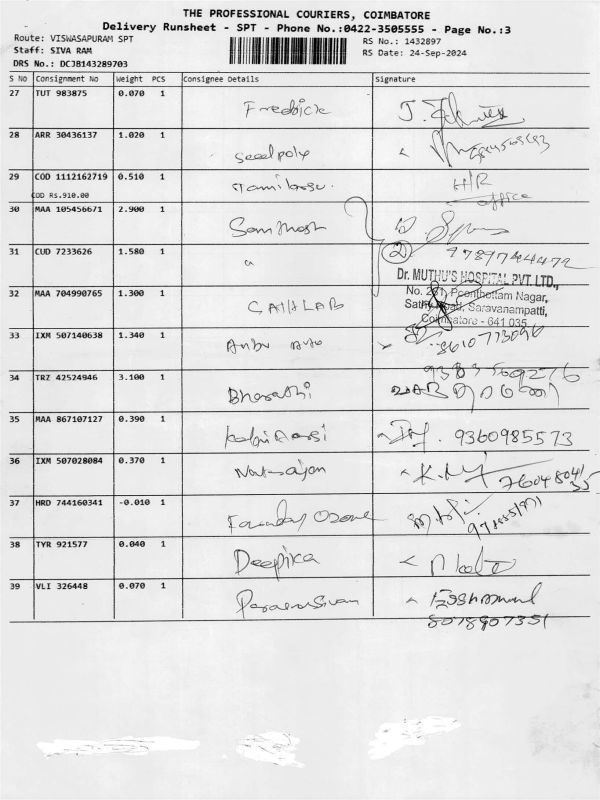 THE PROFESSIONAL COURIERS, COIMBATORE
Delivery Runsheet - SPT - Phone No.:0422-3505555 - Page No.:3
Route: VISWASAPURAM SPT
RS No.: 1432897
Staff: SIVA RAM
RS Date: 24-Sep-2024
DRS No.: DCJB143289703
S No Consignment No Weight PCS Consignee Details Signature
27 TUT 983875 0.070 1 Fredrick
28 ARR 30436137 1.020 1 seedpoly
29 COD 1112162719 0.510 1 H/R
COD Rs.910.00 office
30 MAA 105456671 2.900 1 Santhosh
31 CUD 7233626 1.580 1 " 2 9789744472
Dr. MUTHU'S HOSPITAL PVT. LTD.,
No. 2/1, Poonthottam Nagar,
32 MAA 704990765 1.300 1 CATHLAB Sathy Road, Saravanampatti,
Coimbatore - 641 035
33 IXM 507140638 1.340 1 Anbu Auto 8610773096
34 TRZ 42524946 3.100 1 Bharathi 9383509276
35 MAA 867107127 0.390 1 9360985573
36 IXM 507028084 0.370 1 Natrajan
37 HRD 744160341 -0.010 1 Ozone
38 TYR 921577 0.040 1 Deepika
39 VLI 326448 0.070 1 Paramasivan
8078907351